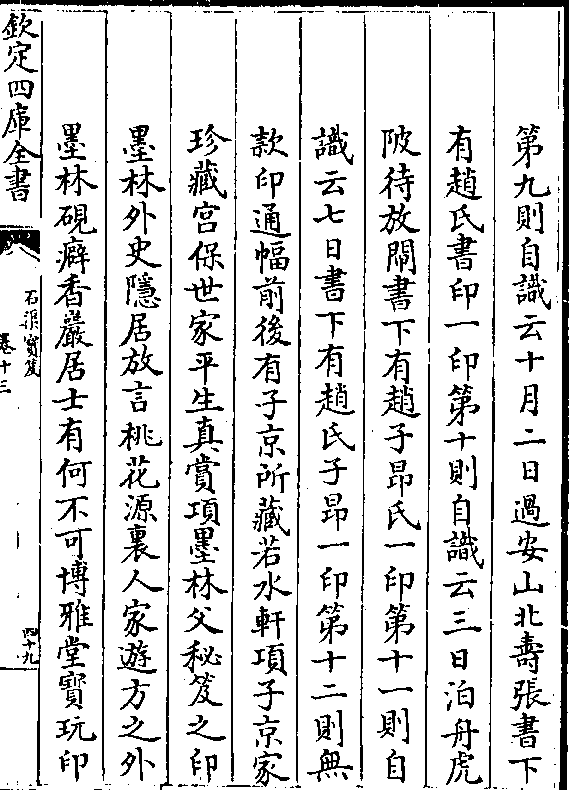 第九則自識云十月二日過安山北壽張書下
有趙氏書印一印第十則自識云三日泊舟虎
陂待放閘書下有趙子昂氏一印第十一則自
識云七日書下有趙氏子昂一印第十二則無
款印通幅前後有子京所藏若水軒項子京家
珍藏宫保世家平生真賞項墨林父秘笈之印
墨林外史隱居放言桃花源裏人家遊方之外
墨林硯癖香嚴居士有何不可博雅堂寳玩印
欽定四庫全書
石渠寳笈
卷十三
四十九